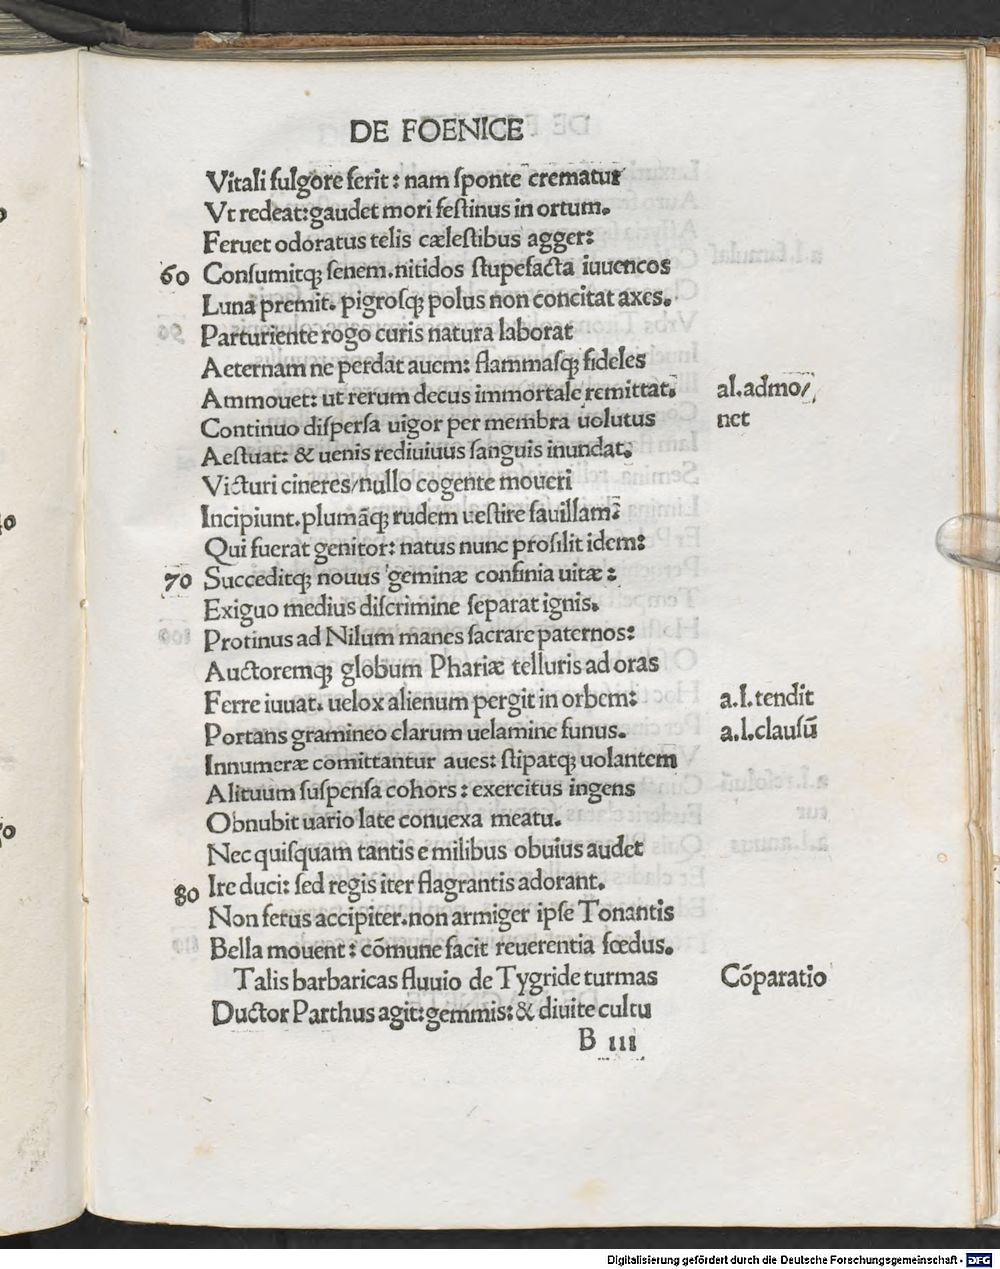 DE FOENICE
Vitali fulgore ferit: nam ſponte crematur
Vt redeat: gaudet mori feſtinus in ortum.
Feruet odoratus telis cæleſtibus agger:
60 Conſumitq; ſenem. nitidos ſtupefacta iuuencos
Luna premit. pigroſq; polus non concitat axes.
Parturiente rogo curis natura laborat
Aeternam ne perdat auem: flammaſq; fideles
Ammouet: ut rerum decus immortale remittat. al. admo/
Continuo diſperſa uigor per membra uolutus net
Aeſtuat: & uenis rediuiuus ſanguis inundat.
Victuri cineres/nullo cogente moueri
Incipiunt. plumāq; rudem ueſtire fauillam:
Qui fuerat genitor: natus nunc proſilit idem:
70 Succeditq; nouus geminæ confinia uitæ:
Exiguo medius diſcrimine ſeparat ignis.
Protinus ad Nilum manes ſacrare paternos:
Auctoremq; globum Phariæ telluris ad oras
Ferre iuuat. uelox alienum pergit in orbem: a.l. tendit
Portans gramineo clarum uelamine funus. a.l. clauſū
Innumeræ comittantur aues: ſtipatq; uolantem
Alituum ſuſpenſa cohors: exercitus ingens
Obnubit uario late conuexa meatu.
Nec quiſquam tantis e milibus obuius audet
80 Ire duci: ſed regis iter flagrantis adorant.
Non ferus accipiter. non armiger ipſe Tonantis
Bella mouent: cōmune facit reuerentia fœdus.
Talis barbaricas fluuio de Tygride turmas Cōparatio
Ductor Parthus agit: gemmis: & diuite cultu
B III
Digitalisierung gefördert durch die Deutsche Forschungsgemeinschaft - DFG